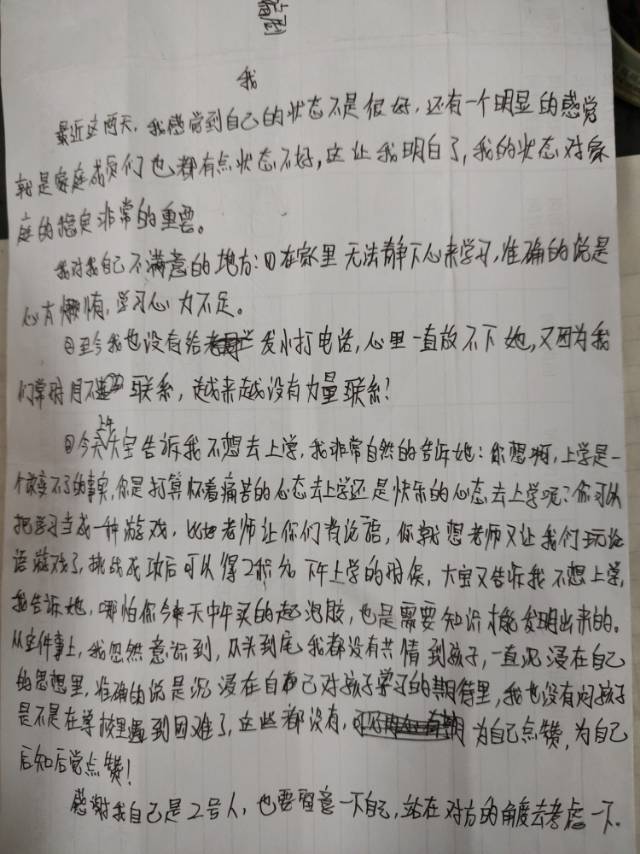 我
最近这两天，我感觉到自己的状态不是很好，还有一个明显的感觉
就是家庭成员们也都有点状态不好，这让我明白了，我的状态对家
庭的稳定非常的重要。
我对我自己不满意的地方：①在家里无法静下心来学习，准确的说是
心太懒惰，学习心力不足。
②至今我也没有给发小打电话，心里一直放不下她，又因为我
们常时月不联系，越来越没有力量联系！
③今天上午大宝告诉我不想去上学，我非常自然的告诉她：你想啊，上学是一
个改变不了的事实，你是打算怀着痛苦的心态去上学还是快乐的心态去上学呢？你可以
把学习当成一种游戏，比如老师让你们背论语，你就想老师又让我们玩论
语游戏了，挑战成功后可以得2积分。下午上学的时候，大宝又告诉我不想上学，
我告诉她，哪怕你今天中午买的起泡胶，也是需要知识才能发明出来的。
从这件事上，我忽然意识到，从头到尾我都没有共情到孩子，一直沉浸在自己
的思想里，准确的说是沉浸在自己对孩子学习的期待里，我也没有问孩子
是不是在学校里遇到困难了，这些都没有，为自己点赞，为自己
后知后觉点赞！
感谢我自己是2号人，也要留意一下自己，站在对方的角度去考虑一下.